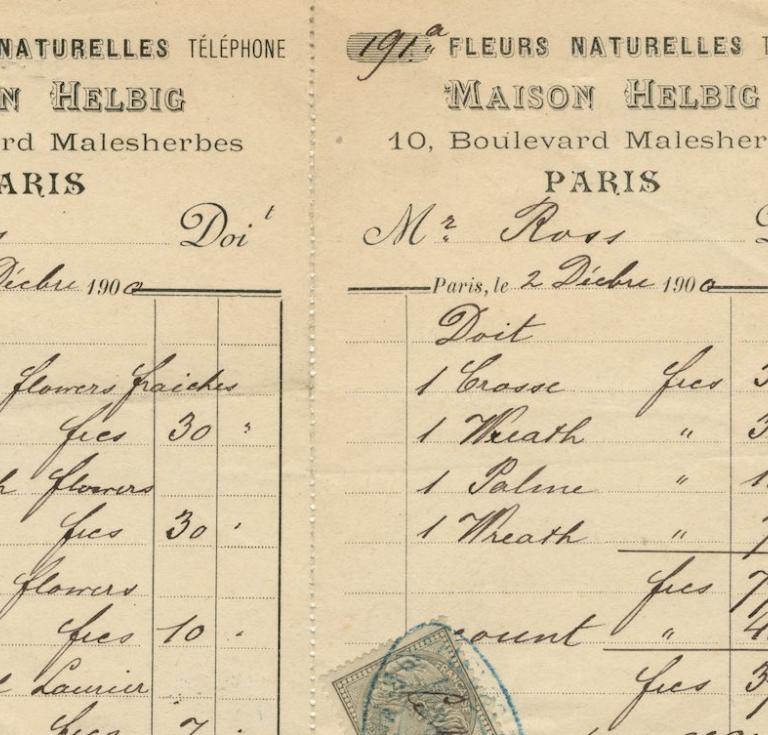 NATURELLES TÉLÉPHONE
N HELBIG
rd Malesherbes
ARIS
Doit
Décbre 1900
flowers fraiches
frcs 30 "
h flowers
frcs 30 "
flowers
frcs 10 "
Laurier
frcs 7
191.a FLEURS NATURELLES T
MAISON HELBIG
10, Boulevard Malesher
PARIS
Mr. Ross
Paris, le 2 Décbre 1900
Doit
1 Crosse frcs 3
1 Wreath " 3
1 Palme " 1
1 Wreath " 7
frcs 7
ount " 4
frcs 3